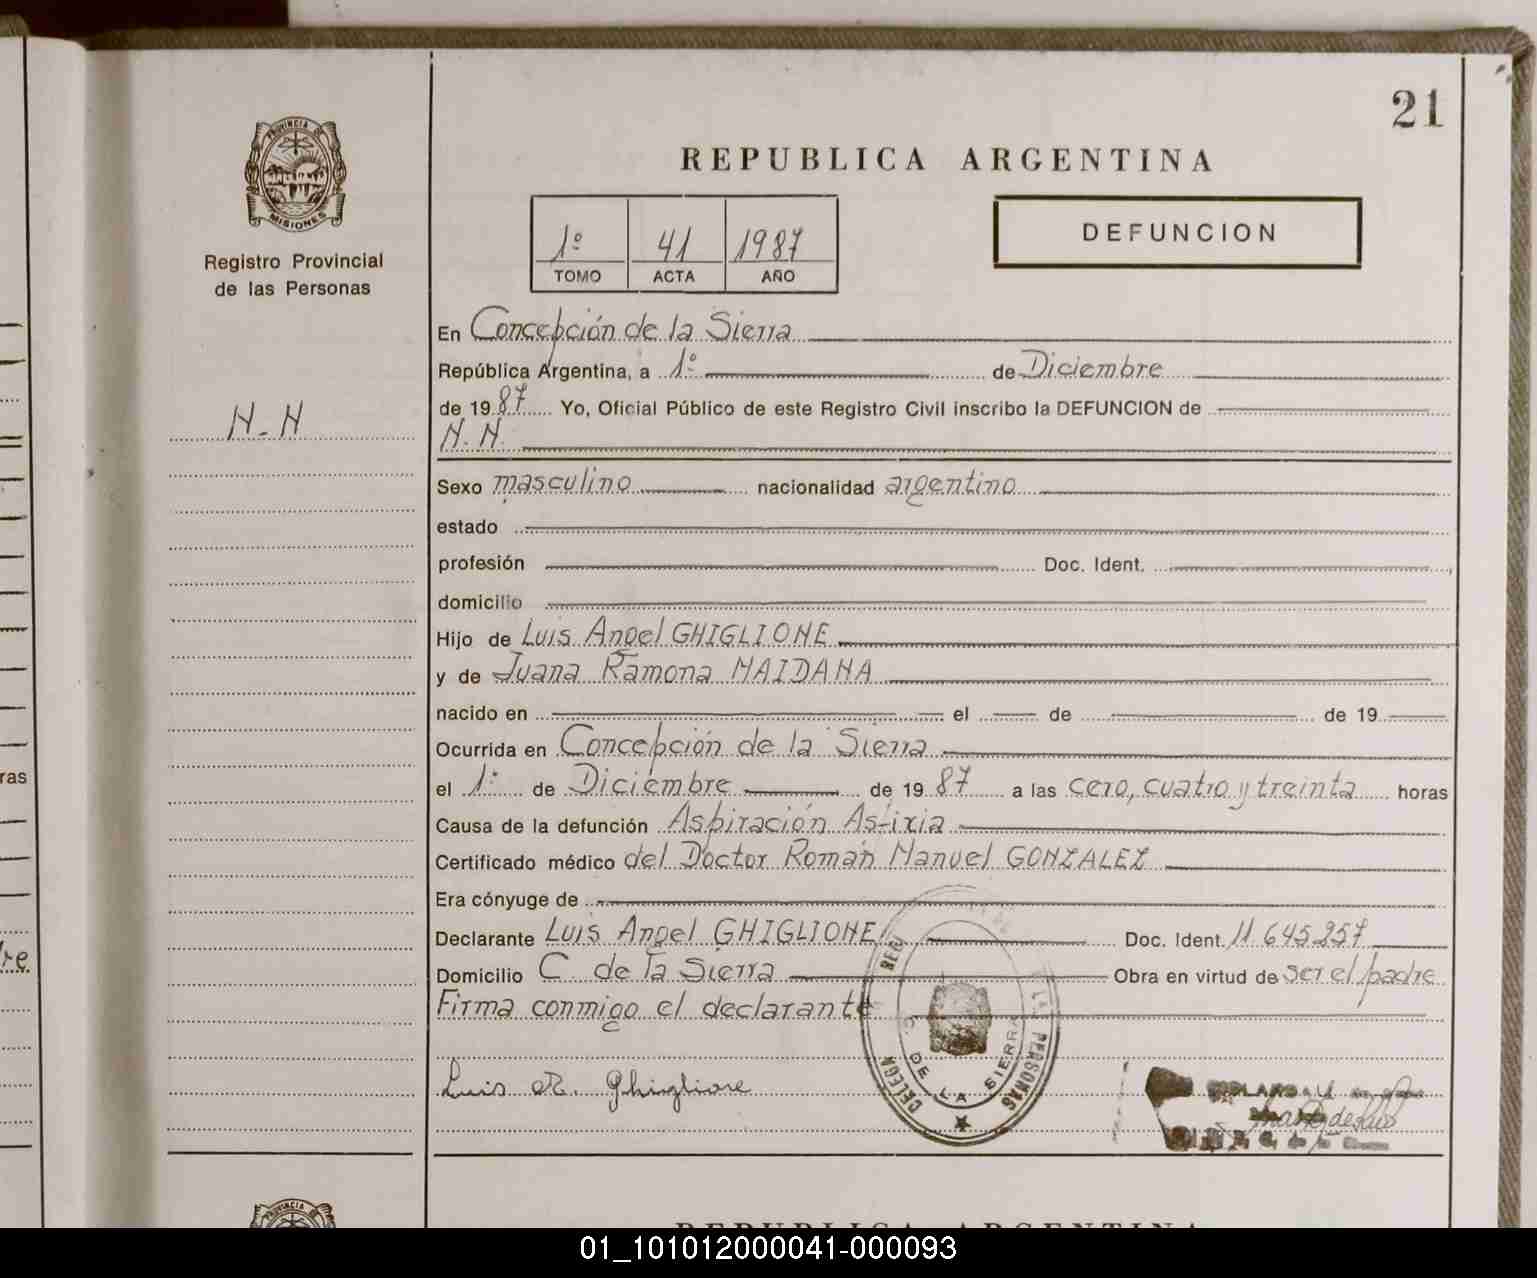 21
REPUBLICA ARGENTINA
PROVINCIA DE
MISIONES
Registro Provincial
de las Personas
1º 41 1987
TOMO ACTA AÑO
DEFUNCION
En Concepción de la Sierra
República Argentina, a 1º de Diciembre
de 1987 Yo, Oficial Público de este Registro Civil inscribo la DEFUNCION de
N-N
N.N.
Sexo masculino nacionalidad argentino
estado
profesión Doc. Ident.
domicilio
Hijo de Luis Angel GHIGLIONE
y de Juana Ramona MAIDANA
nacido en el de de 19
Ocurrida en Concepción de la Sierra
el 1º de Diciembre de 1987 a las cero, cuatro y treinta horas
ras
Causa de la defunción Aspiración Asfixia
Certificado médico del Doctor Román Manuel GONZALEZ
Era cónyuge de
Declarante Luis Angel GHIGLIONE Doc. Ident. 11.645.257
Domicilio C. de la Sierra Obra en virtud de ser el padre
Firma conmigo el declarante
Luis A. Ghiglione
DELEGA
DE LA SIERRA
PERSONAS
PROVINCIA
REPUBLICA ARGENTINA
01_101012000041-000093